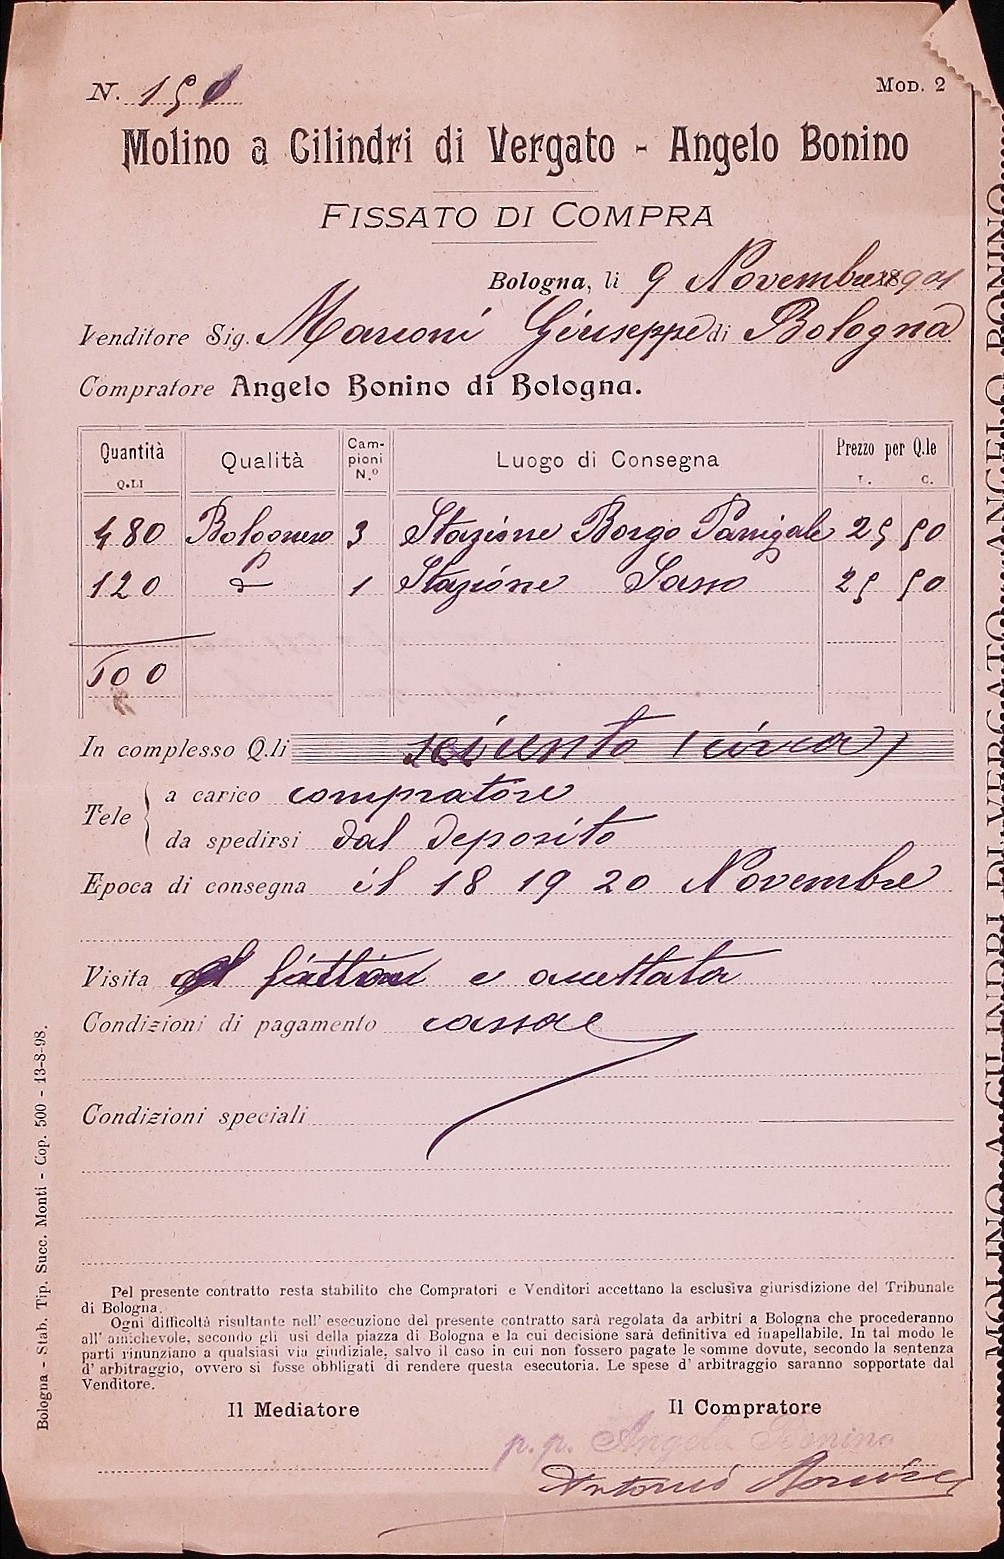 N. 15
MOD. 2
Molino a Cilindri di Vergato - Angelo Bonino
FISSATO DI COMPRA
Bologna, li 9 Novembre 1901
Venditore Sig. Marconi Giuseppe di Bologna
Compratore Angelo Bonino di Bologna.
Quantità Q.LI Qualità Campioni N.º Luogo di Consegna Prezzo per Q.le L. C.
480 Bolognese 3 Stazione Borgo Panigale 25 50
120 1 Stazione Sasso 25 50
600
In complesso Q.li seicento (circa)
Tele a carico compratore
da spedirsi dal deposito
Epoca di consegna il 18 19 20 Novembre
Visita e accettata
Condizioni di pagamento cassa
Condizioni speciali
Pel presente contratto resta stabilito che Compratori e Venditori accettano la esclusiva giurisdizione del Tribunale
di Bologna.
Ogni difficoltà risultante nell' esecuzione del presente contratto sarà regolata da arbitri a Bologna che procederanno
all' amichevole, secondo gli usi della piazza di Bologna e la cui decisione sarà definitiva ed inapellabile. In tal modo le
parti rinunziano a qualsiasi via giudiziale, salvo il caso in cui non fossero pagate le somme dovute, secondo la sentenza
d' arbitraggio, ovvero si fosse obbligati di rendere questa esecutoria. Le spese d' arbitraggio saranno sopportate dal
Venditore.
Il Mediatore Il Compratore
p. p. Angelo Bonino
Antonio Bonino
Bologna - Stab. Tip. Succ. Monti - Cop. 500 - 13-8-98.
MOLINO A CILINDRI DI VERGATO - ANGELO BONINO